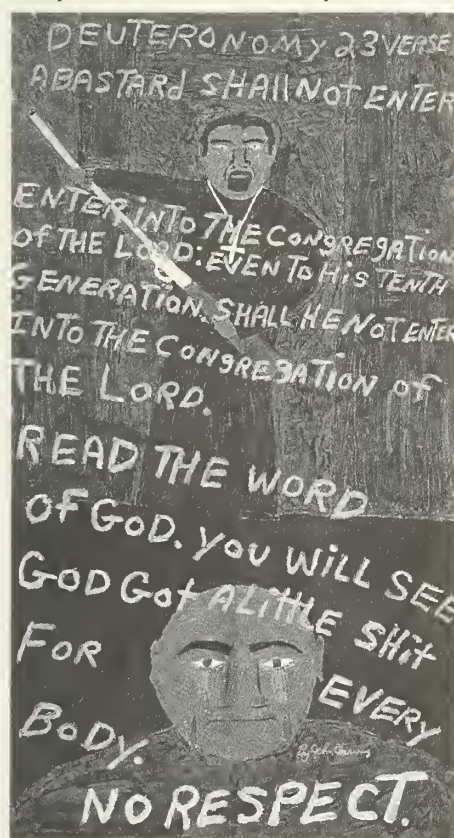 DEUTERONOMY 23 VERSE
A BASTARd SHAll NOT ENTER
ENTER iNTO THE CONgREgATiON
Of THE LORD: EVEN TO HiS TENTH
GENERATiON. SHALL HE NOT ENTER
INTO THE CONgREgATiON of
THE LORD.
READ THE WORD
OF GOD. YOU WiLL SEE
GOD GOt A LiTTlE SHit
FOR
EVERY
BODY.
NO RESPECT.